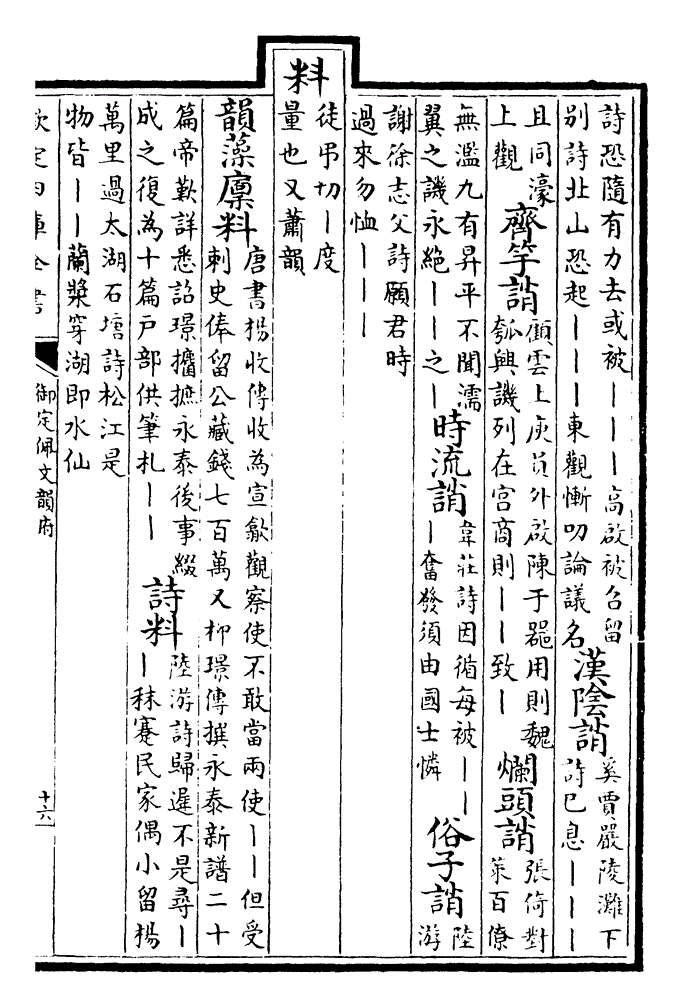 詩恐隨有力去或被｜｜｜高啟被召留
別詩北山恐起｜｜｜東觀慚叨論議名
漢陰誚
奚賈嚴陵灘下
詩已息｜｜｜
且同濠
上觀
齊竽誚
顧雲上庾員外啟陳于噐用則魏
瓠興譏列在宫商則｜｜致｜
爛頭誚
張倚對
策百僚
無濫九有昇平不聞濡
翼之譏永絕｜｜之｜
時流誚
韋莊詩因循每被｜｜
｜奮發須由國士憐
俗子誚
陸
游
謝徐志父詩願君時
過來勿恤｜｜｜
料
徒弔切｜度
量也又蕭韻
韻藻廩料
唐書楊收傳收為宣歙觀察使不敢當兩使｜｜但受
刺史俸留公藏錢七百萬又柳璟傳撰永泰新譜二十
篇帝歎詳悉詔璟攟摭永泰後事綴
成之復為十篇戸部供筆札｜｜
詩料
陸游詩歸遲不是尋｜
｜秣蹇民家偶小留楊
萬里過太湖石塘詩松江是
物皆｜｜蘭槳穿湖即水仙
欽定四庫全書
御定佩文韻府
十六